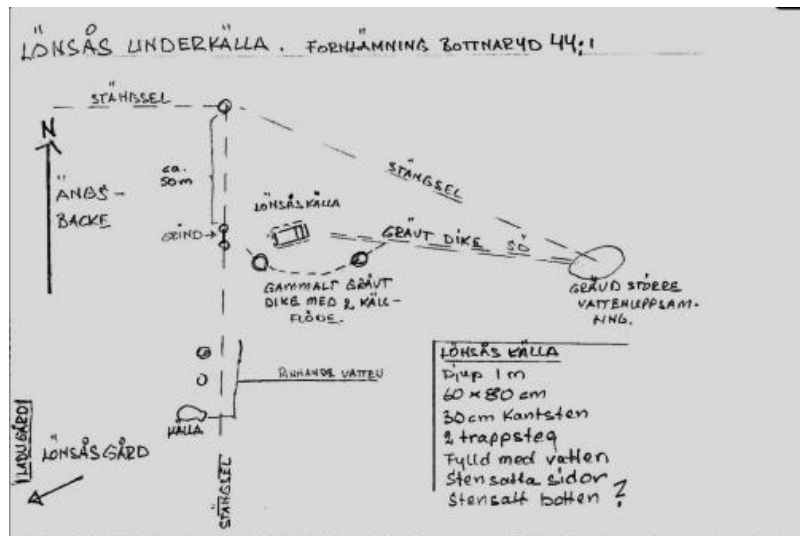 LÖNSÅS UNDERKÄLLA. FORNLÄMNING BOTTNARYD 44:1
STÄNGSEL
N
ÄNGS-
BACKE
ca.
50m
STÄNGSEL
LÖNSÅSKÄLLA
GRIND
GRÄVT DIKE SÖ
GAMMALT GRÄVT
DIKE MED 2 KÄLL-
FLÖDE.
GRÄVD STÖRRE
VATTENUPPSAM-
NING.
RINNANDE VATTEN
KÄLLA
LADUGÅRD
LÖNSÅSGÅRD
STÄNGSEL
LÖNSÅS KÄLLA
Djup 1 m
60 x 80 cm
30 cm Kantsten
2 trappsteg
Fylld med vatten
Stensatta sidor
Stensatt botten ?